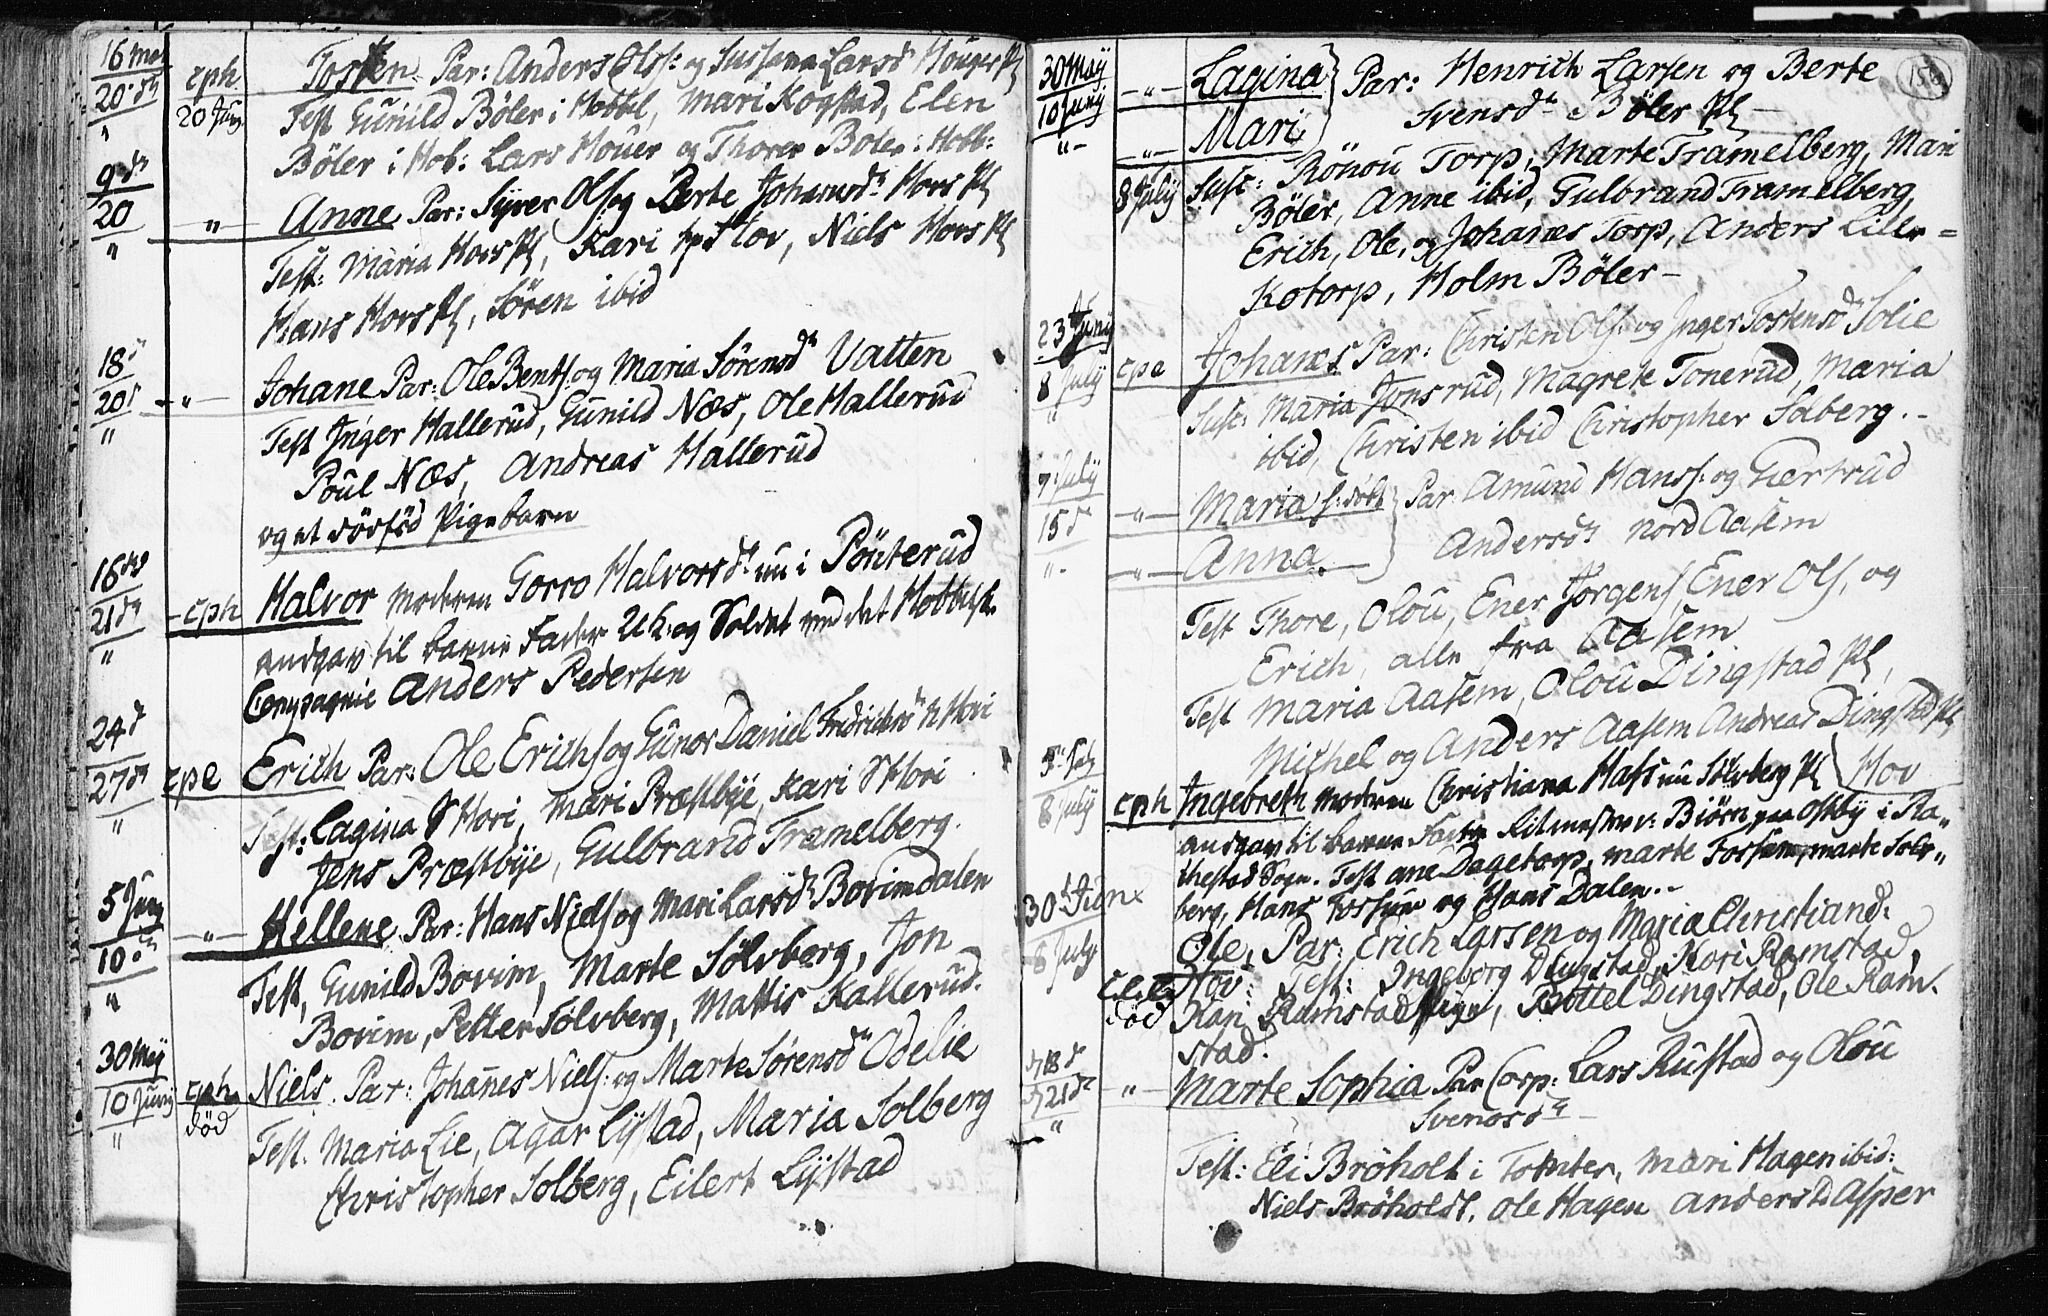 16 May
20 dn cph Tosten Par: Anders Ols: og Sussana Larsd. Houger Pl
" 20 Juny Test Gunild Böler i Hobbel, Mari Kogstad, Elen
Böler i Hob: Lars Houer og Thorer Boler i Hobb:
9 dn
20 " Anne Par: Syver Ols og Berte Johansd. Hovs Pl
" Test: Maria Hovs Pl, Kari Hov, Niels Hovs Pl
Hans Hovs Pl, Sören ibid
18 d
20 d " Johane Par: Ole Bents: og Maria Sörensd. Vatten
" Test Inger Hallerud, Gunild Næs, Ole Hallerud
Poul Næs, Andreas Hallerud
og et dödföd Pigebarn
16 dn
21 dn cph Halvor moderen Gorro Halvorsd. nu i Pönterud
" andgav til barne Fader U.K. og Soldat ved det Hobbelske
Compagnie Anders Pedersen
24 d
27 dn cpe Erich Par: Ole Erichs og Gunor Daniel Fridrichsd. Skori
" Test: Lagina Skori, Mari Præstbye, Kari Skori
Jens Præstbye, Gulbrand Tramelberg.
5 Juny
10 dn " Hellene Par: Hans Niels og Mari Larsd. Bovimdalen
" Test, Gunild Bovim, Marte Sölvberg, Jon
Bovim, Petter Sölvberg, Mattis Kallerud.
30 May
10 Juny cph Niels. Par: Johanes Niels: og Marte Sörensd. Odelie
" död Test. Maria Lie, Agar Lystad, Maria Solberg
Christopher Solberg, Eilert Lystad
30 May
10 Juny " Lagina } Par: Henrich Larsen og Berte
" " Mari } Svensd. Böler Pl
8 July Susc: Rönou Torp, Marte Tramelberg, Mari
Böler, Anne ibid, Gulbrand Tramelberg,
Erich, Ole, og Johanes Torp, Anders Lille=
Kotorp, Holm Böler
23 Juny
8 July cpe Johanes Par: Christen Ols: og Inger Tostensd. Solie
" Susc: Maria Jonsrud, Magrete Tonerud, Maria
ibid, Christen ibid Christopher Solberg.
7 July
15 d " Maria h: döbt } Par Amund Hanss: og Giertrud
" " Anna } Andersd. nord Aasem
Test Thore, Olou, Ener Jörgens, Ener Ols, og
Erich, alle fra Aasem
Test Maria Aasem, Olou Dingstad Pl,
Michel og Anders Aasem Andreas Dingstad Pl
8 July cph Ingebreth moderen Christiana Hafs nu Sölvberg Pl / Hov
andgav til barne Fader Ritmester v: Biörn paa Ostby i Ra=
thestad Sogn. Test ane Dagetorp, marte Fossum, marte Solv=
berg, Hans Fossum og Hans Dalen.
30 Juni
8 July Ole, Par: Erich Larsen og Maria Christiand:
död Hov: Test: Ingeborg Dingstad, Kari Ramstad,
Kari Ramstad Pige, Bottel Dingstad, Ole Ram-
stad.
18 d
21 d " Marte Sophia Par Corp: Lars Rustad og Olou
" Svendsd.
Test: Eli Bröholt i Tomter, Mari Hagen ibid:
Niels Bröholdt, Ole Hagen Anders Asper